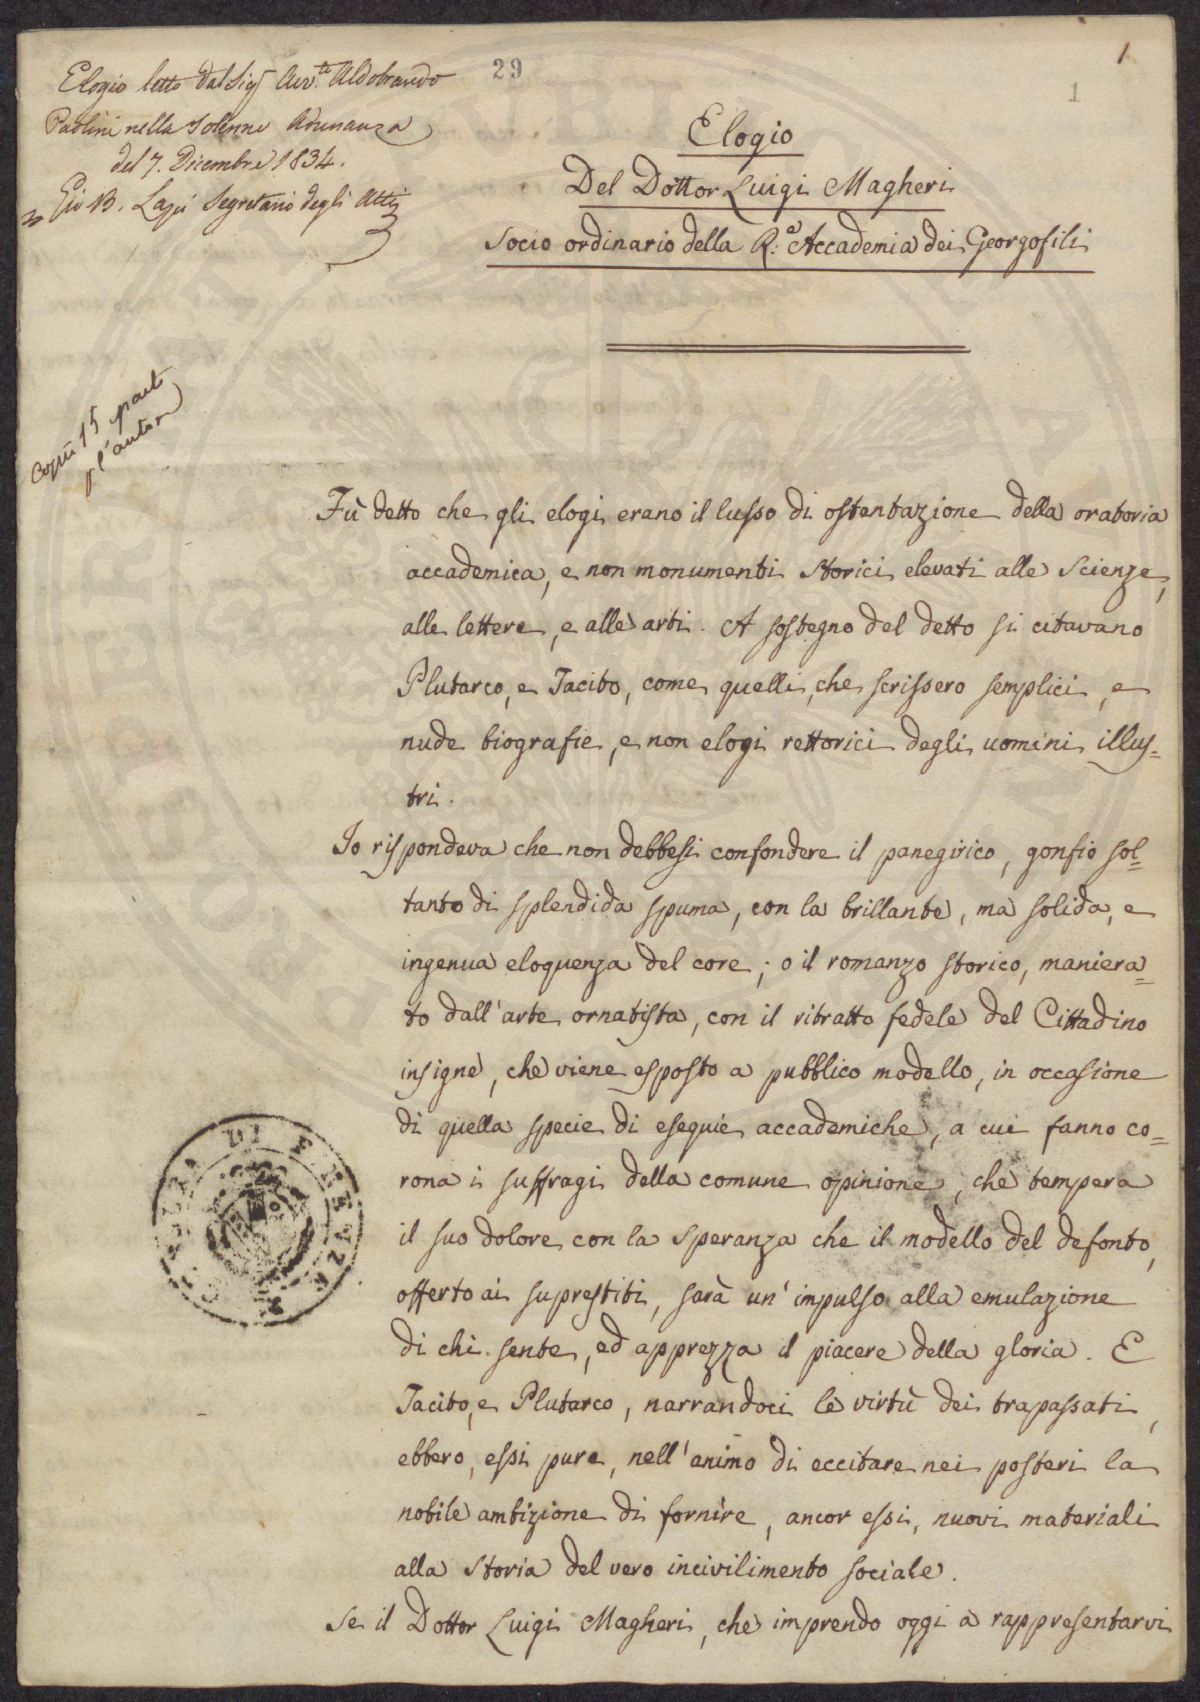 Elogio letto dal Sig.r Avv.to Aldobrando
Paolini nella Solenne Adunanza
del 7. Dicembre 1834.
Gio B. Lapi Segretario degli Atti
29
1
1
Elogio
Del Dottor Luigi Magheri
Socio ordinario della R.e Accademia dei Georgofili
Copie 15 part
l'autore
Fù detto che gli elogi erano il lusso di ostentazione della oratoria
accademica, e non monumenti storici elevati alle Scienze,
alle lettere, e alle arti. A sostegno del detto si citavano
Plutarco, e Tacito, come quelli, che scrissero semplici, e
nude biografie, e non elogi rettorici degli uomini illus=
tri.
Io rispondeva che non debbesi confondere il panegirico, gonfio sol=
tanto di splendida spuma, con la brillante, ma solida, e
ingenua eloquenza del core; o il romanzo storico, maniera=
to dall'arte ornatista, con il ritratto fedele del Cittadino
insigne, che viene esposto a pubblico modello, in occasione
di quella specie di esequie accademiche, a cui fanno co=
rona i suffragi della comune opinione, che tempera
il suo dolore con la speranza che il modello del defonto,
offerto ai suprestiti, sarà un'impulso alla emulazione
di chi sente, ed apprezza il piacere della gloria. E
Tacito, e Plutarco, narrandoci le virtù dei trapassati,
ebbero, essi pure, nell'animo di eccitare nei posteri la
nobile ambizione di fornire, ancor essi, nuovi materiali
alla Storia del vero incivilimento sociale.
Se il Dottor Luigi Magheri, che imprendo oggi a rappresentarvi